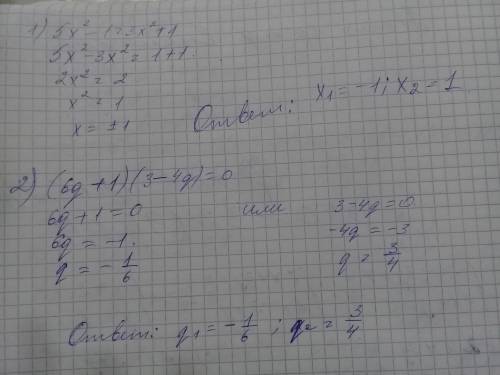 1) 5x² - 1 = 3x² + 1
5x² - 3x² = 1 + 1
2x² = 2
x² = 1
x = ±1
Ответ: x₁ = -1; x₂ = 1
2) (6q + 1)(3 - 4q) = 0
6q + 1 = 0 или 3 - 4q = 0
6q = -1. -4q = -3
q = -1/6 q = 3/4
Ответ: q₁ = -1/6 ; q₂ = 3/4